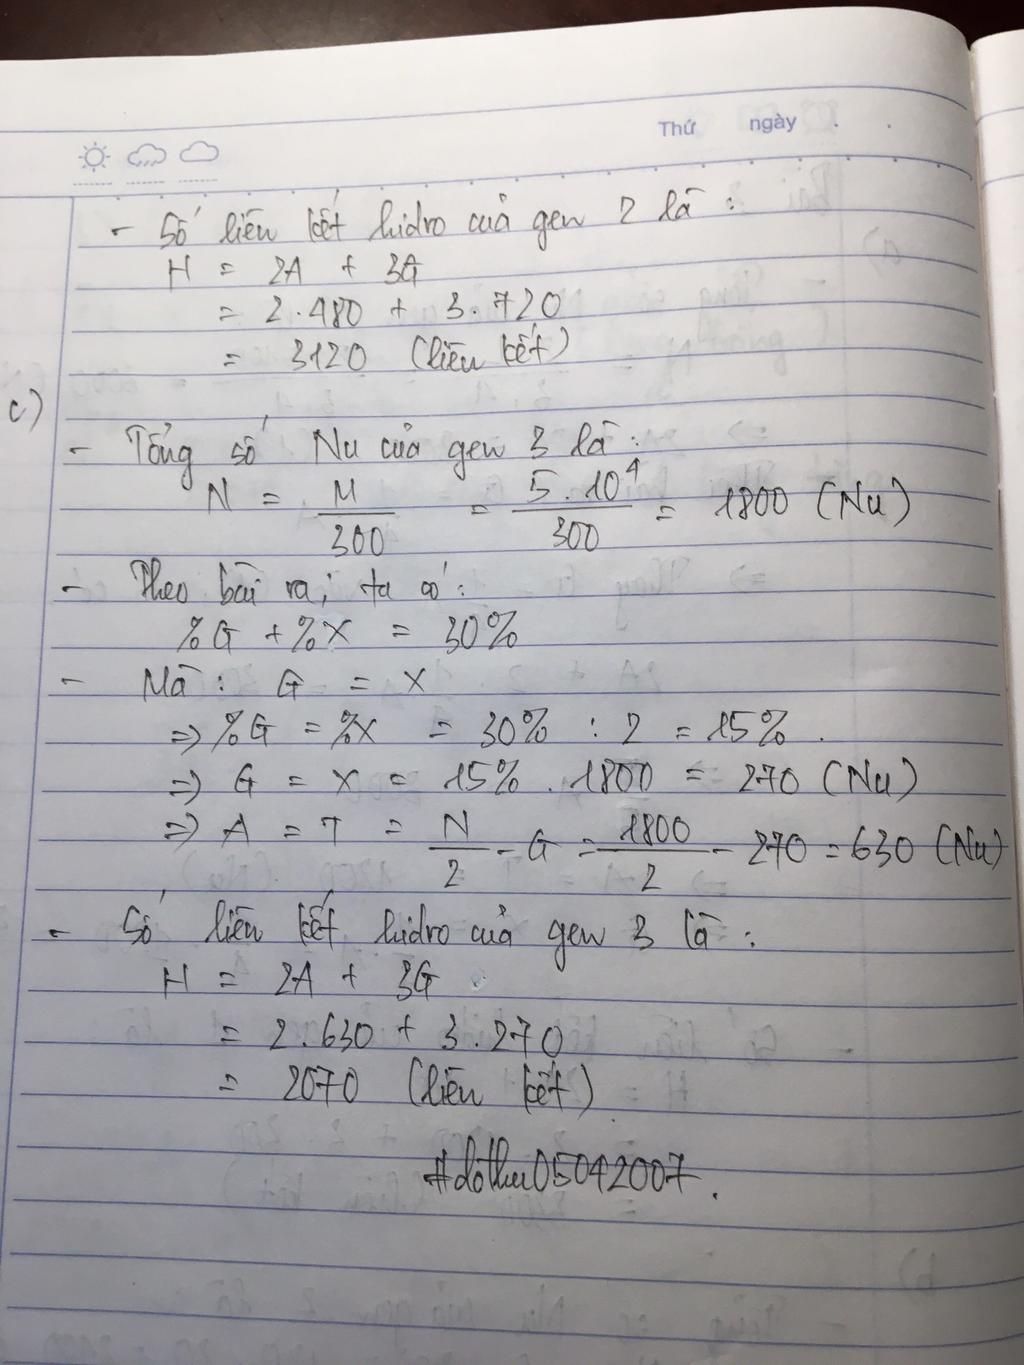 Thứ ngày
- Số liên kết hidro của gen 2 là :
H = 2A + 3G
= 2.480 + 3.720
= 3120 (liên kết)
c)
- Tổng số Nu của gen 3 là :
N = M/300 = 5.10⁴/300 = 1800 (Nu)
- Theo bài ra, ta có :
%G + %X = 30%
- Mà : G = X
=> %G = %X = 30% : 2 = 15%.
=> G = X = 15% . 1800 = 270 (Nu)
=> A = T = N/2 - G = 1800/2 - 270 = 630 (Nu)
- Số liên kết hidro của gen 3 là :
H = 2A + 3G
= 2.630 + 3.270
= 2070 (liên kết)
#dôthu05042007.